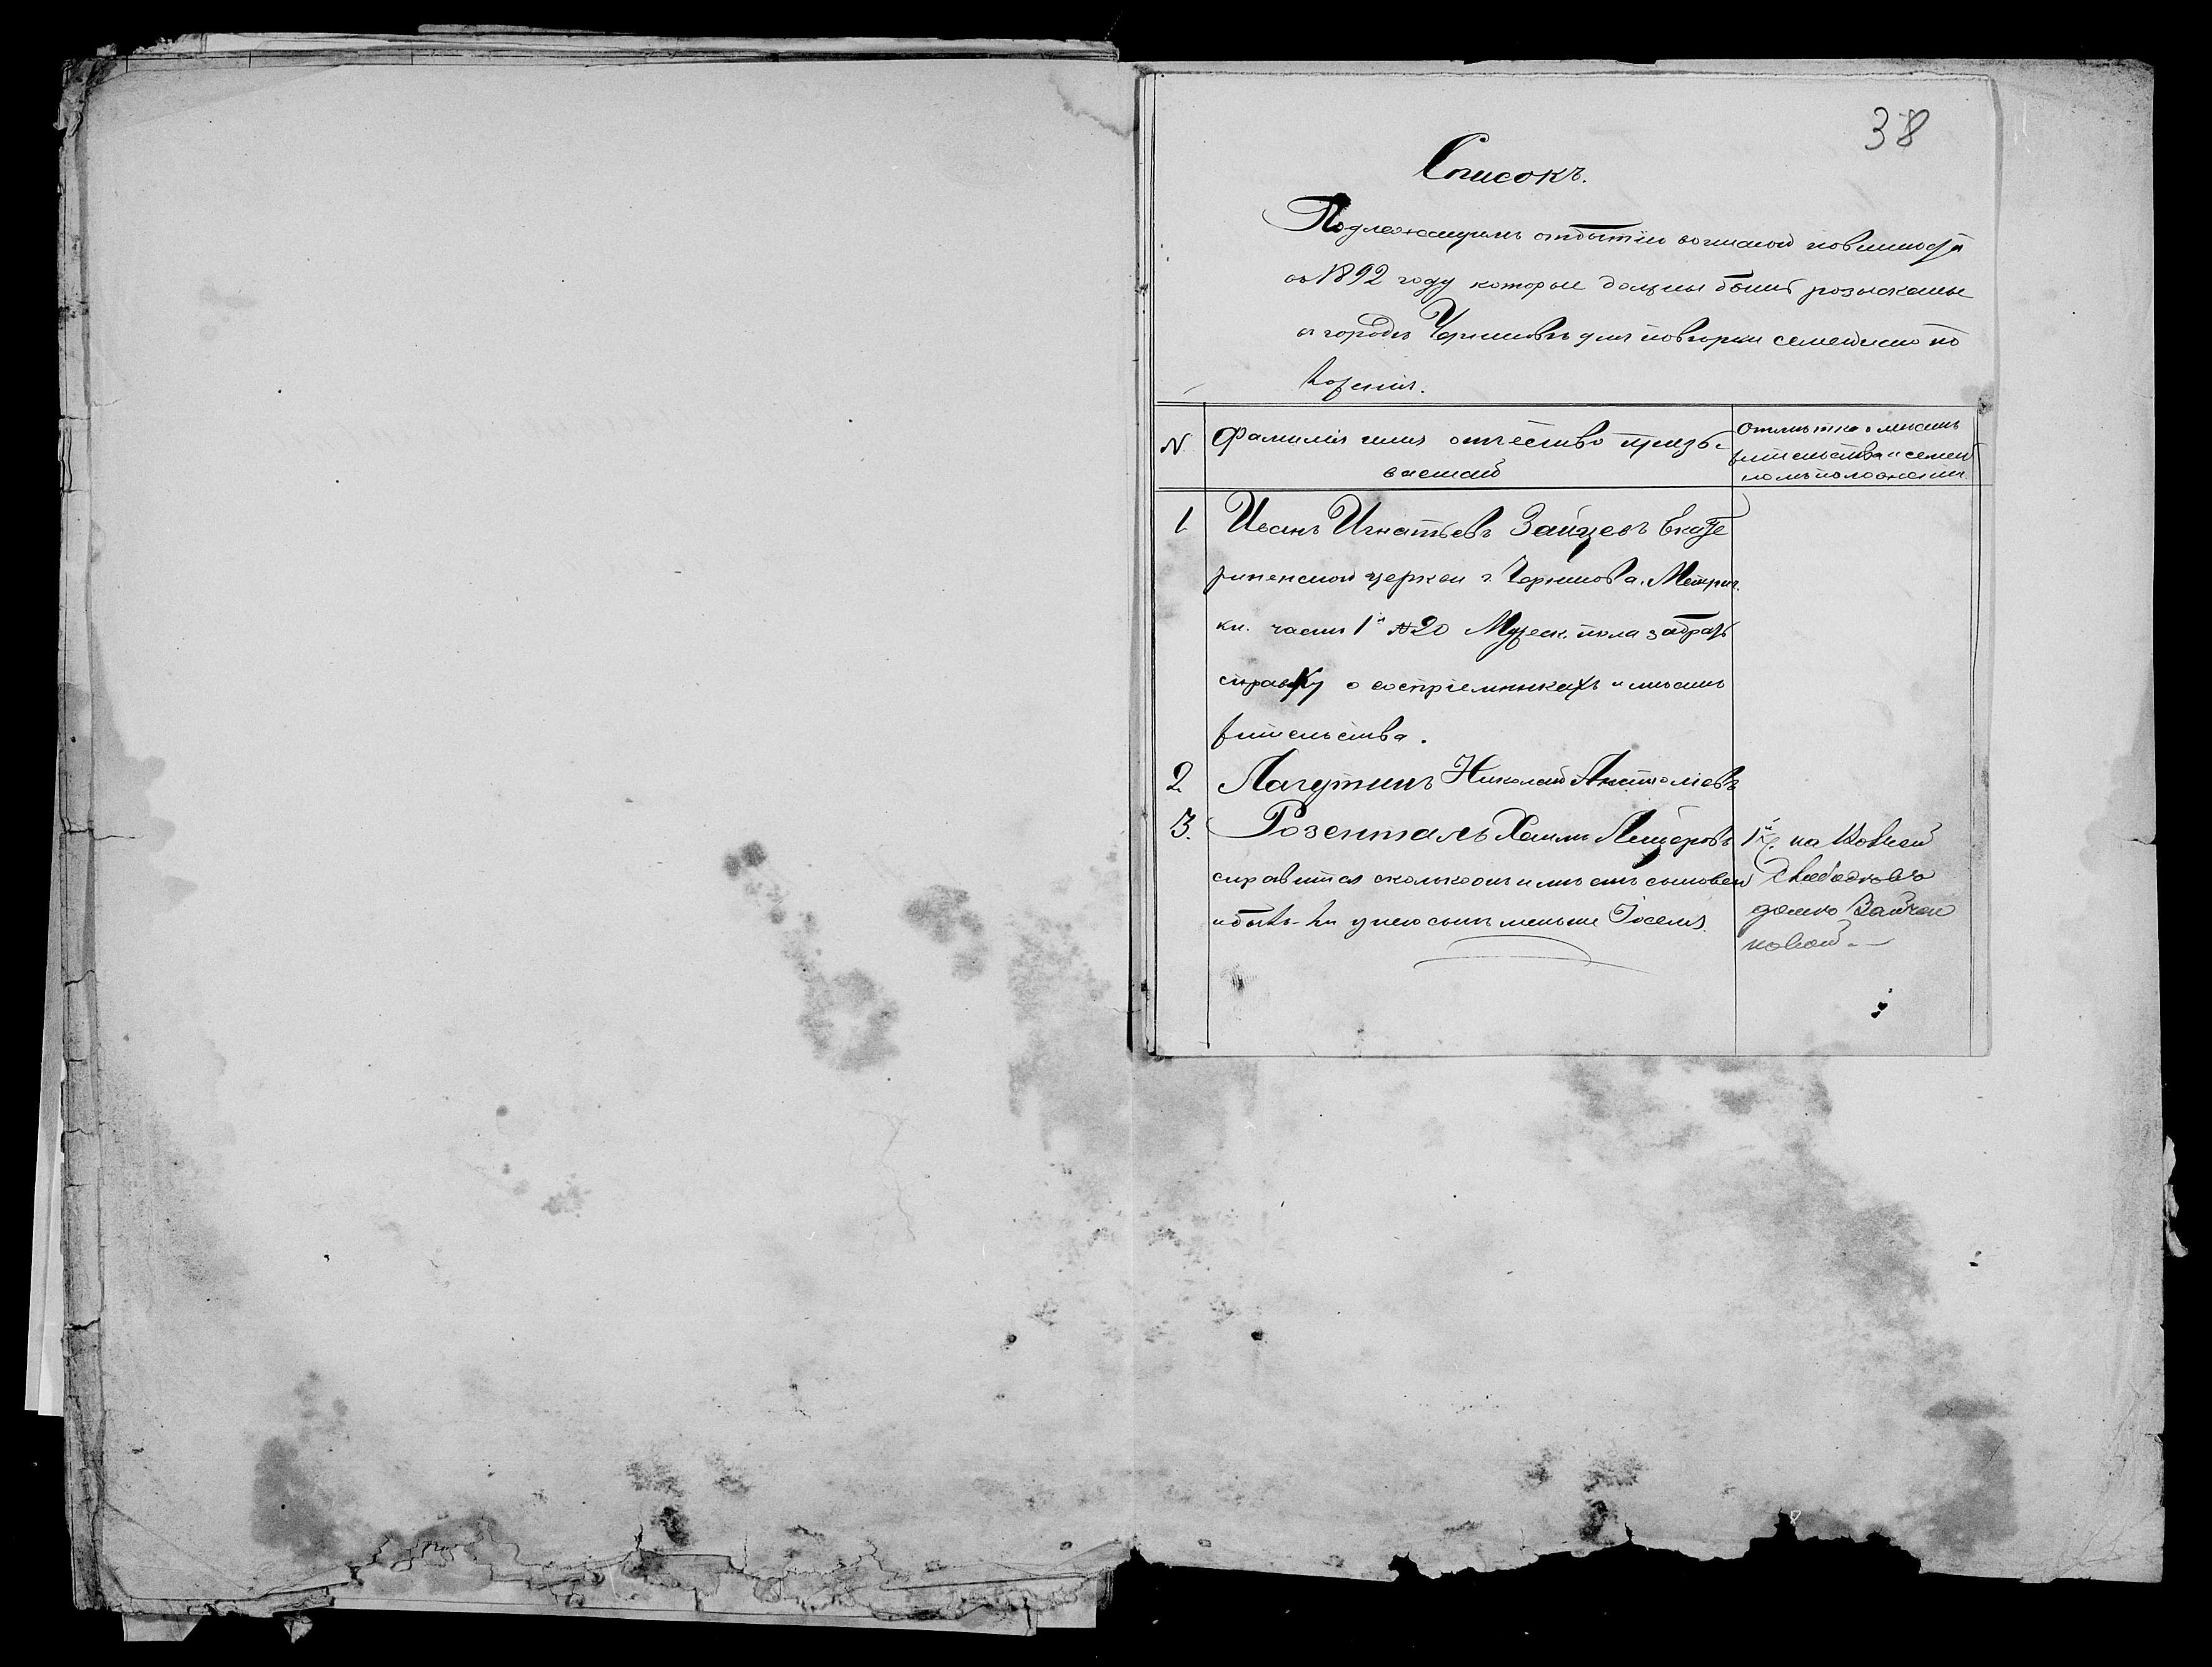 38
Списокъ.
Подлежащимъ отбытію воинской повинности
въ 1892 году которые должны быть розысканы
въ городѣ Черниговѣ для повѣрки семейнаго по
ложенія.
N Фамилія имя отчество призы-
ваемаго
Отмѣтка о мѣстѣ
жительства и семей
номъ положеніи
1 Иванъ Игнатьевъ Зайцевъ Екате
рининской церкви г. Чернигова. Метрич.
кн. часть 1я №20 Мужеск. пола забрать
справку о воспріемникахъ и мѣстѣ
жительства.
2 Лагутинъ Николай Анатоліевъ
3. Розенталь Хаимъ Лейзеровъ
справится сколько онъ имѣетъ сыновей
и есть-ли у него сынъ меньше Іосель
1й ч. на
домъ